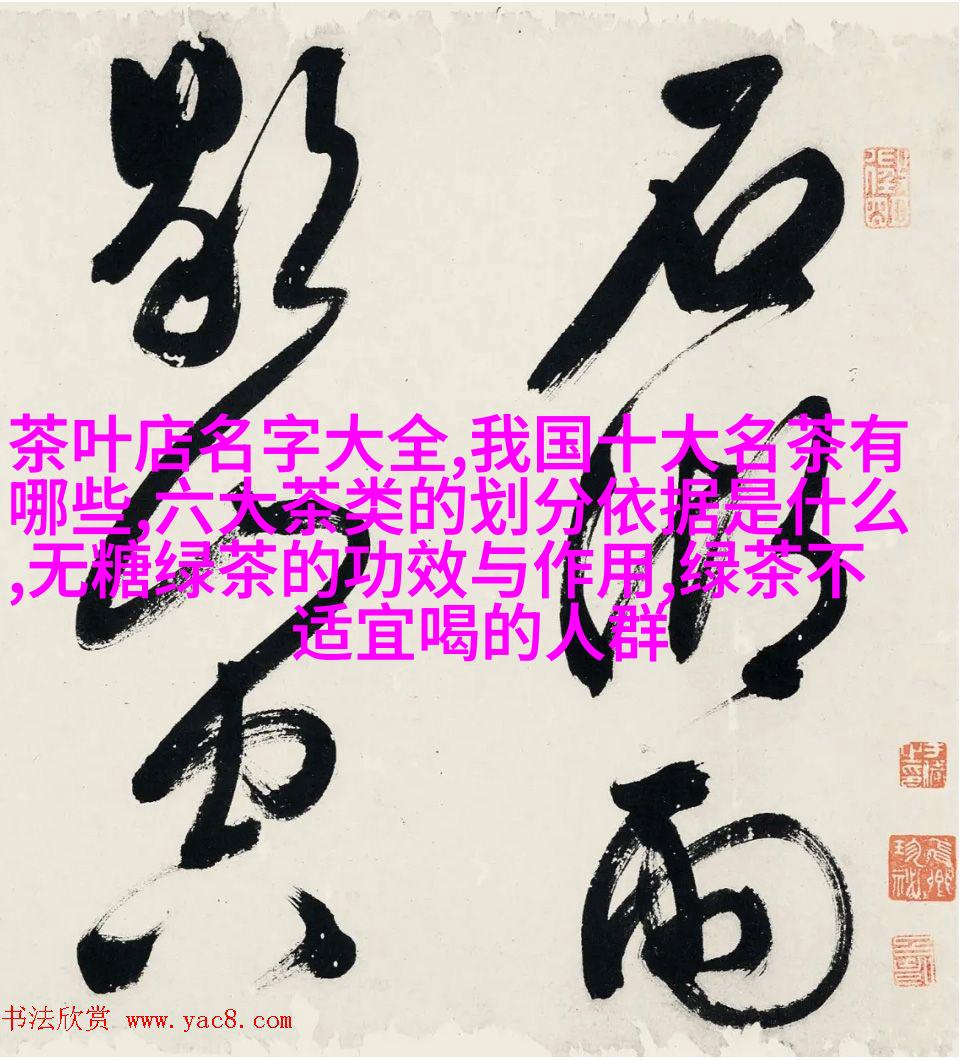 石湖雨
歇山空
茶叶店名字大全,我国十大名茶有
哪些,六大茶类的划分依据是什么
,无糖绿茶的功效与作用,绿茶不
适宜喝的人群
书法欣赏 www.yac8.com